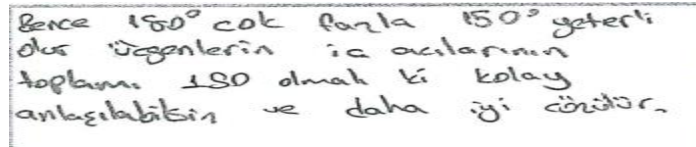 Bence 180° cok fazla 150° yeterli
olur üçgenlerin iç acılarının
toplamı 150 olmalı ki kolay
anlaşılabilsin ve daha iyi çözülür.